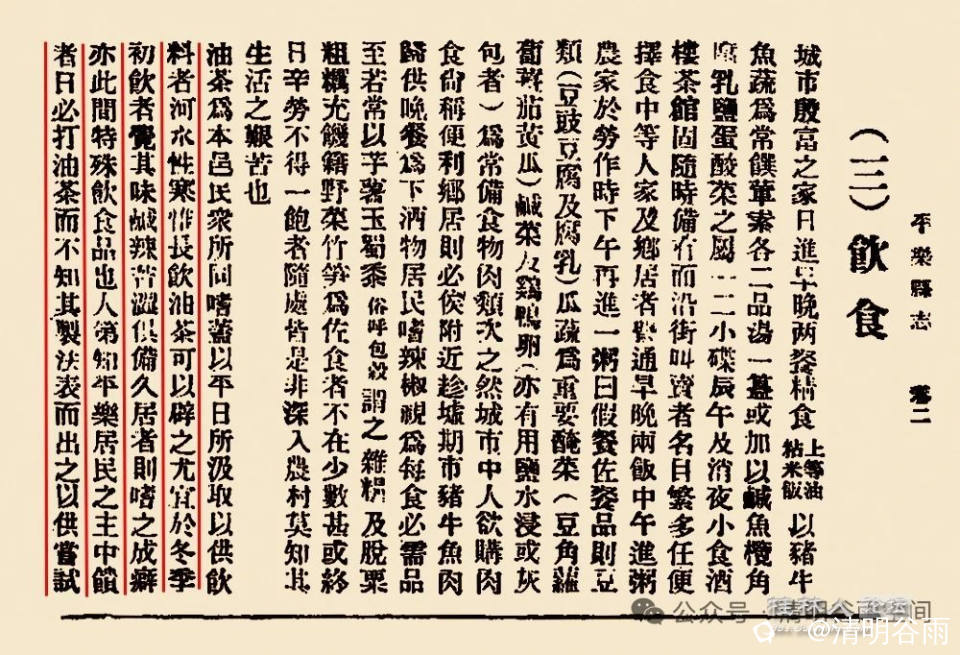 平樂縣志 卷二
（三）飲食
城市殷富之家日進早晚两餐精食上等油粘米飯以豬牛
魚蔬爲常饌葷素各二品湯一簋或加以鹹魚欖角
腐乳鹽蛋酸菜之屬一二小碟辰午及消夜小食酒
樓茶館固隨時備有而沿街叫賣者名目繁多任便
擇食中等人家及鄉居者普通早晚兩飯中午進粥
農家於勞作時下午再進一粥曰假餐佐餐品則豆
類（豆豉豆腐及腐乳）瓜蔬爲重要醃菜（豆角蘿
蔔蕎茄黃瓜）鹹菜及鷄鴨卵（亦有用鹽水浸或灰
包者）爲常備食物肉類次之然城市中人欲購肉
食尙稱便利鄉居則必俟附近趁墟期市豬牛魚肉
歸供晚餐爲下酒物居民嗜辣椒視爲每食必需品
至若常以芋薯玉蜀黍俗呼包穀謂之雜糧及脫粟
粗糲充饑籍野菜竹筍爲佐食者不在少數甚或終
日辛勞不得一飽者隨處皆是非深入農村莫知其
生活之艱苦也
油茶爲本邑民衆所同嗜蓋以平日所汲取以供飲
料者河水性寒惟長飲油茶可以辟之尤宜於冬季
初飲者覺其味鹹辣苦澀俱備久居者則嗜之成癖
亦此間特殊飲食品也人第知平樂居民之主中饋
者日必打油茶而不知其製法表而出之以供嘗試
公众号
@清明谷雨